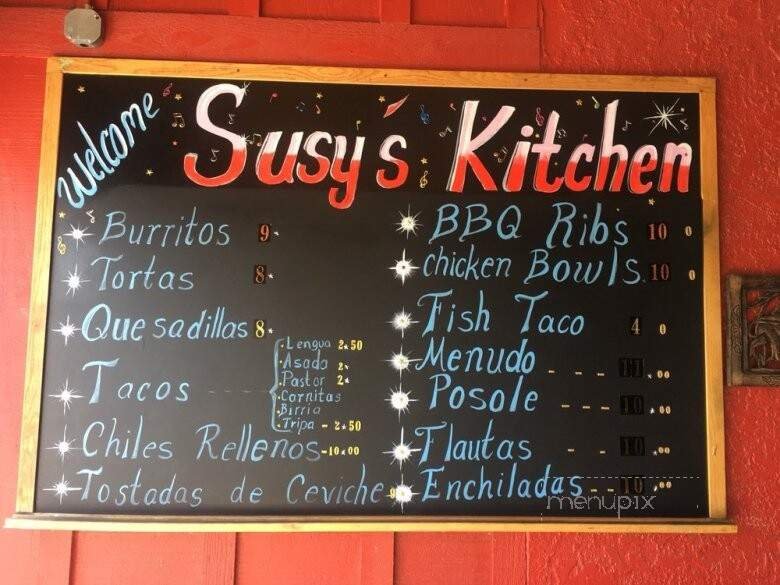 Welcome
Susy's Kitchen
Burritos 9
Tortas 8
Quesadillas 8
Tacos
Lengua 2.50
Asada 2
Pastor 2
Cornitas
Birria
Tripa - 2.50
Chiles Rellenos - 10.00
Tostadas de Ceviche
BBQ Ribs 10 0
chicken Bowls 10 0
Fish Taco 4 0
Menudo - - - 11.00
Posole - - - 10.00
Flautas - - 10.00
Enchiladas - - 10.00
menupix